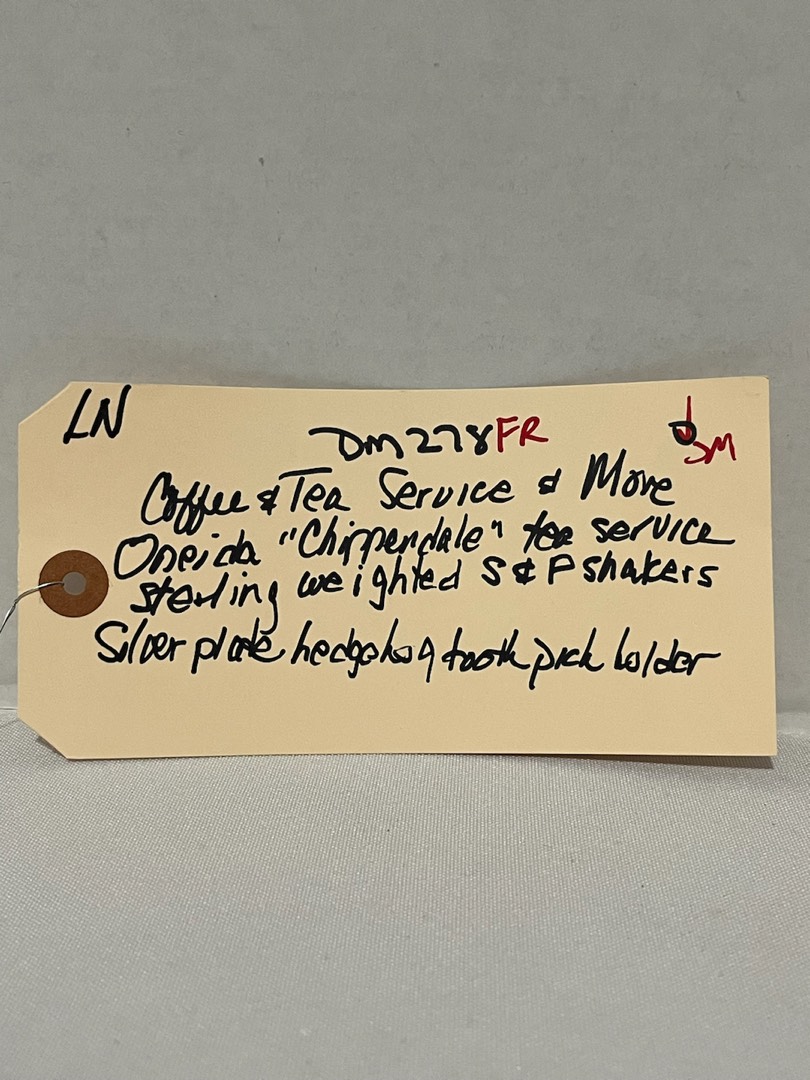 LN
DM278FR
JM
Coffee & Tea Service & More
Oneida "Chippendale" tea service
sterling weighted S & P shakers
Silver plate hedgehog tooth pick holder